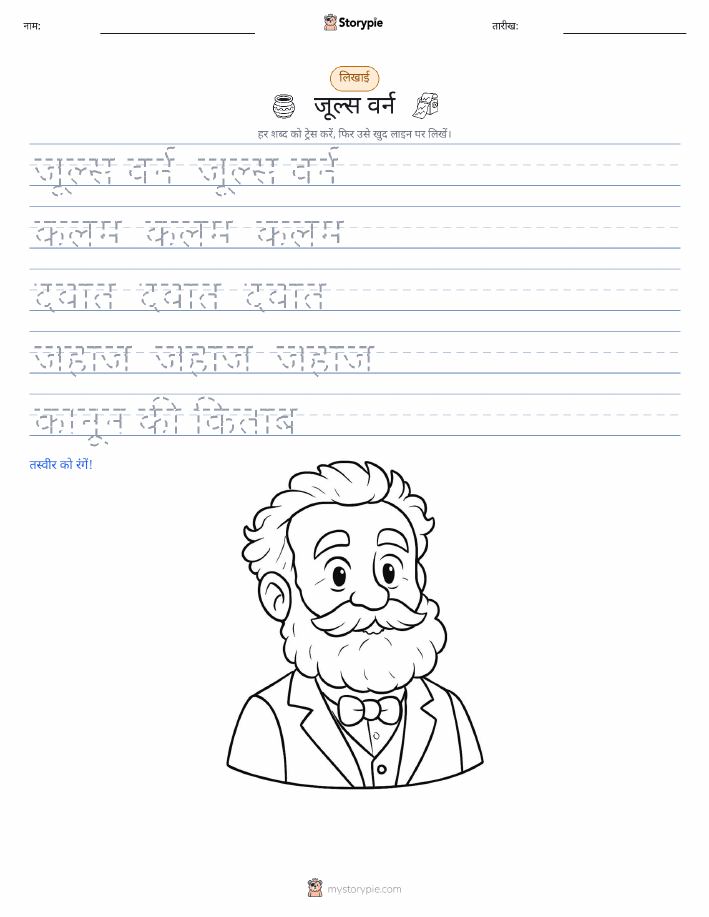 नाम:
Storypie
तारीख:
लिखाई
जूल्स वर्न
हर शब्द को ट्रेस करें, फिर उसे खुद लाइन पर लिखें।
जूल्स वर्न जूल्स वर्न
कलम कलम कलम
दवात दवात दवात
जहाज जहाज जहाज
कानून की किताब
तस्वीर को रंगें!
mystorypie.com